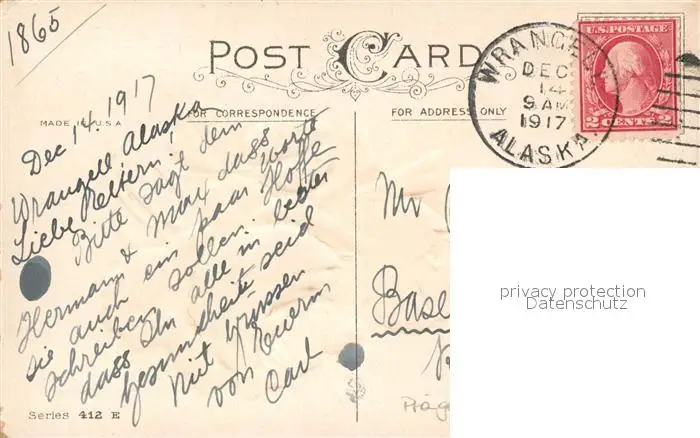 1865
POST CARD
MADE U.S.A
FOR CORRESPONDENCE
FOR ADDRESS ONLY
WRANGELL
DEC
14
9 AM
1917
ALASKA
U.S. POSTAGE
2 CENTS 2
Dec 14. 1917
Wrangell Alaska
Liebe Aeltern!
Bitte sagt dem
Hermann & Max dass
sie auch ein paar worte
schreiben sollen. Hoffe
dass Ihr alle in bester
Gesundheit seid
Mit Grüssen
von Euerm
Carl
Mr
Base
privacy protection
Datenschutz
Series 412 E